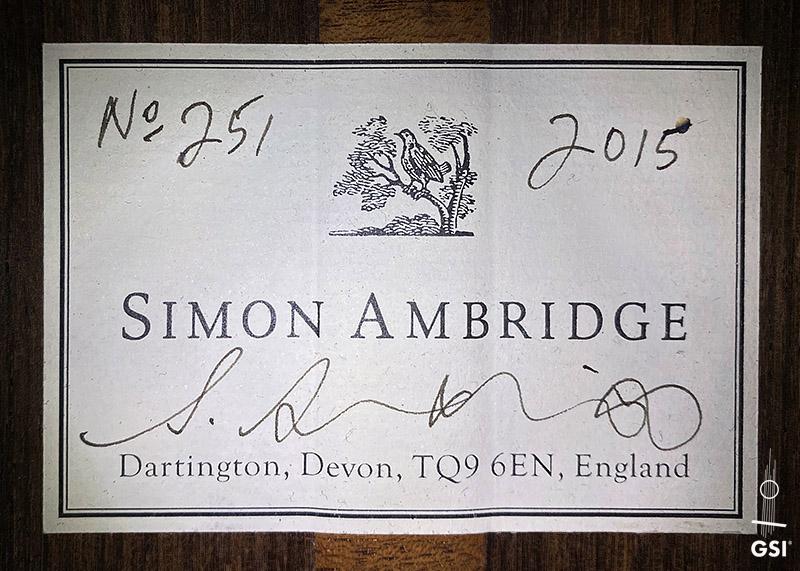 Nº 251
2015
SIMON AMBRIDGE
S. Ambridge
Dartington, Devon, TQ9 6EN, England
GSI®